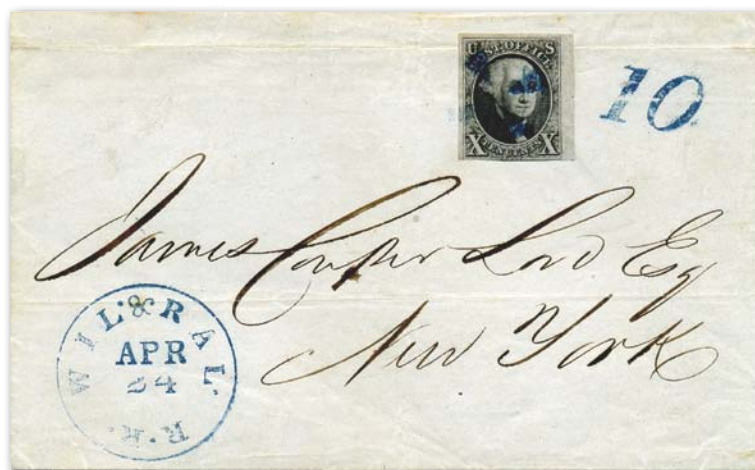 U S
POST OFFICE
X TEN CENTS X
10
James Couper Lord Esq
New York
WIL. & RAL. R.R.
APR
24